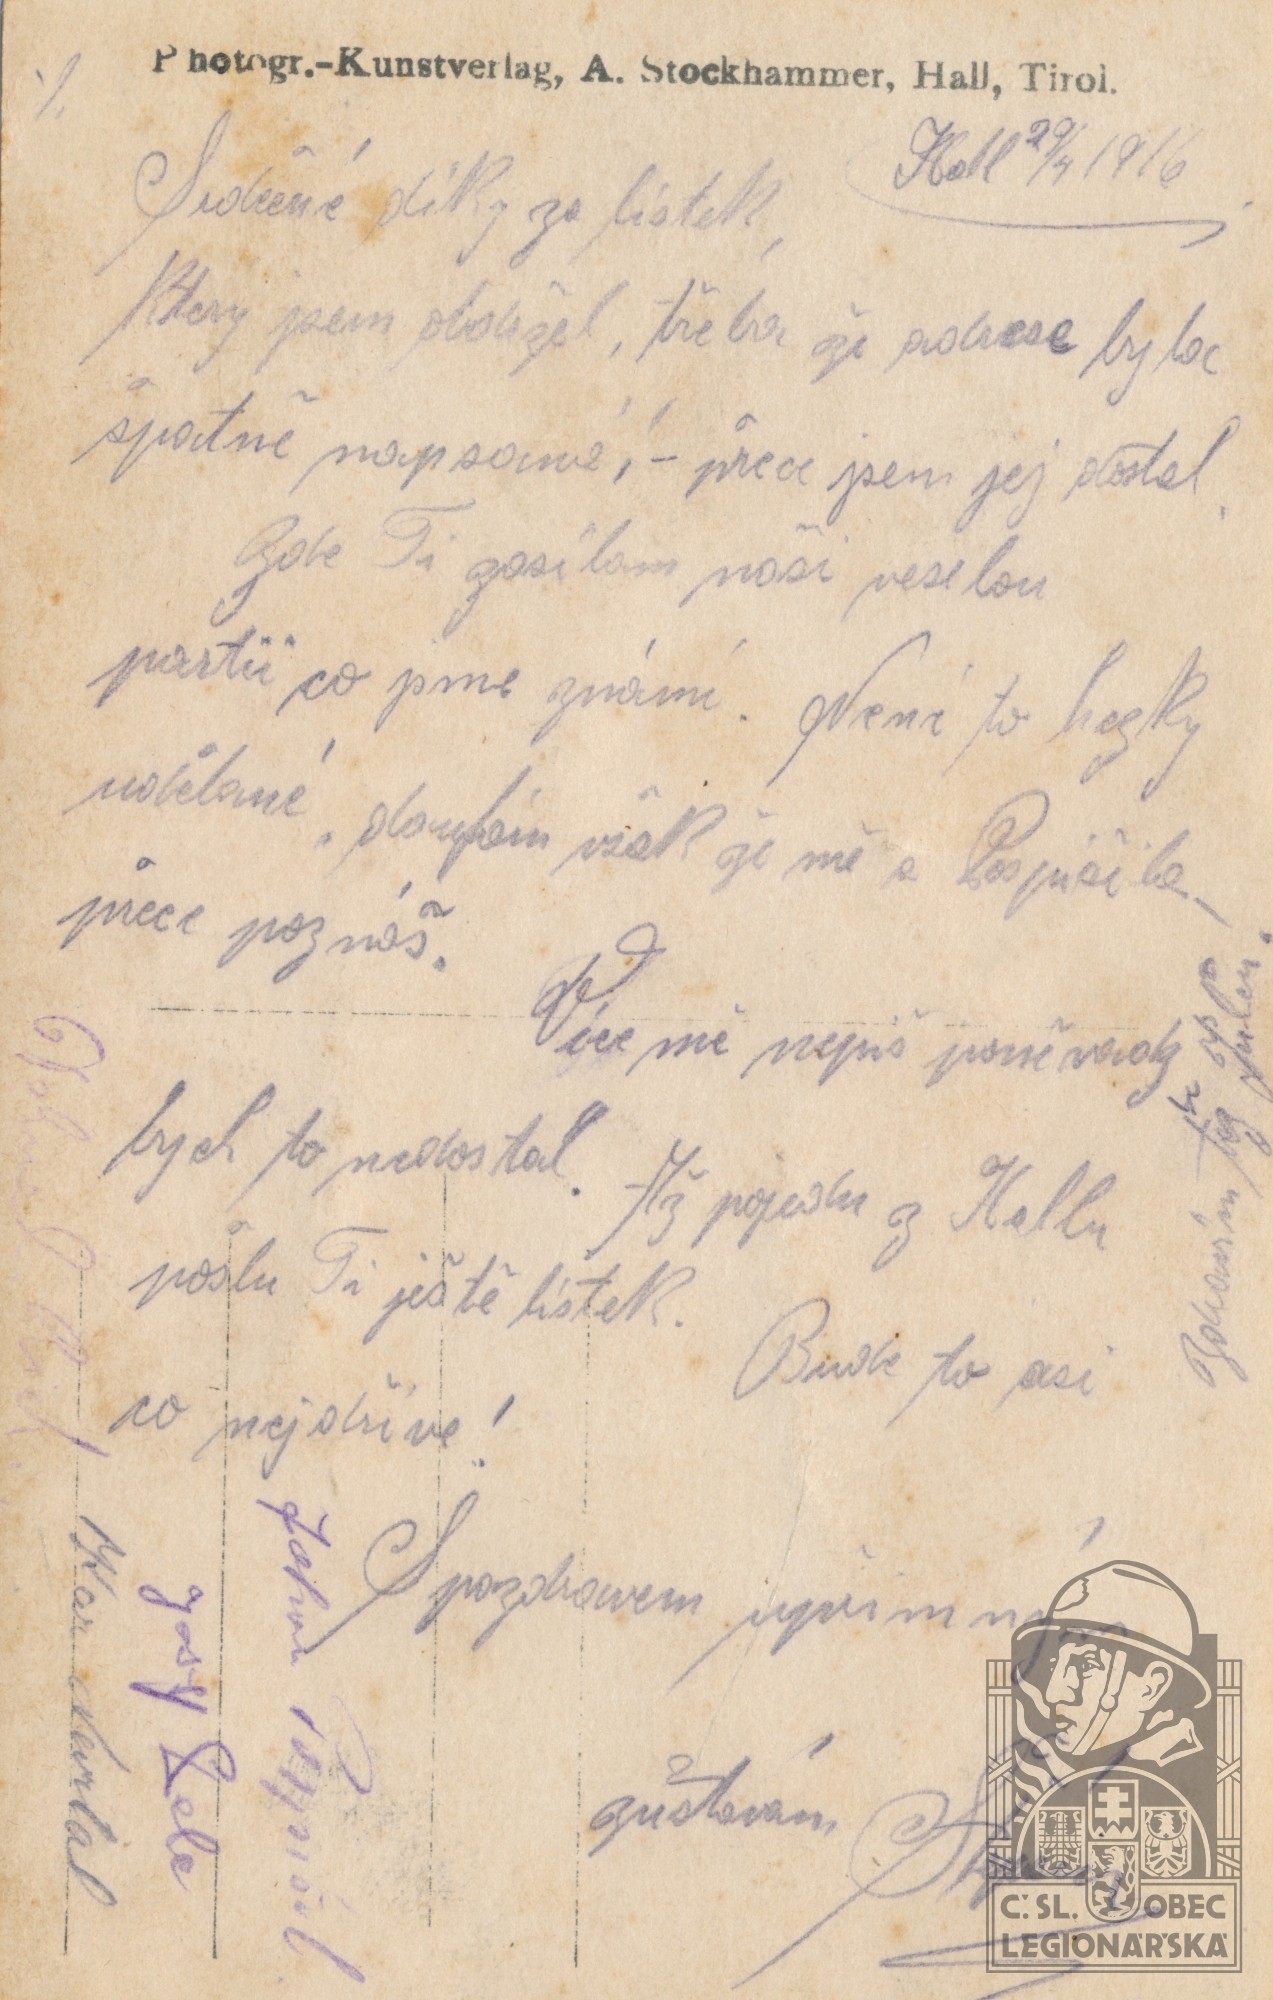 Photogr.-Kunstverlag, A. Stockhammer, Hall, Tirol.
Hall 29/4 1916
Srdečné díky za lístek,
který jsem obdržel, třeba že adrese byla
špatně napsané, - přece jsem jej dostal.
Zde Ti zasílam naši veselou
partii co jsme známí. Není to hezky
udělané, doufám však že mě a Pospíšila,
přece poznáš.
Více mě nepiš poněvadz
bych to nedostal. Až pojedu z Hallu
pošlu Ti ještě lístek. Bude to asi
co nejdříve!
S pozdravem upřímným
zůstávám
Karel Navrlal
Josef Zela
Pospíšil
Zdravím
Č. SL. OBEC
LEGIONÁŘSKÁ